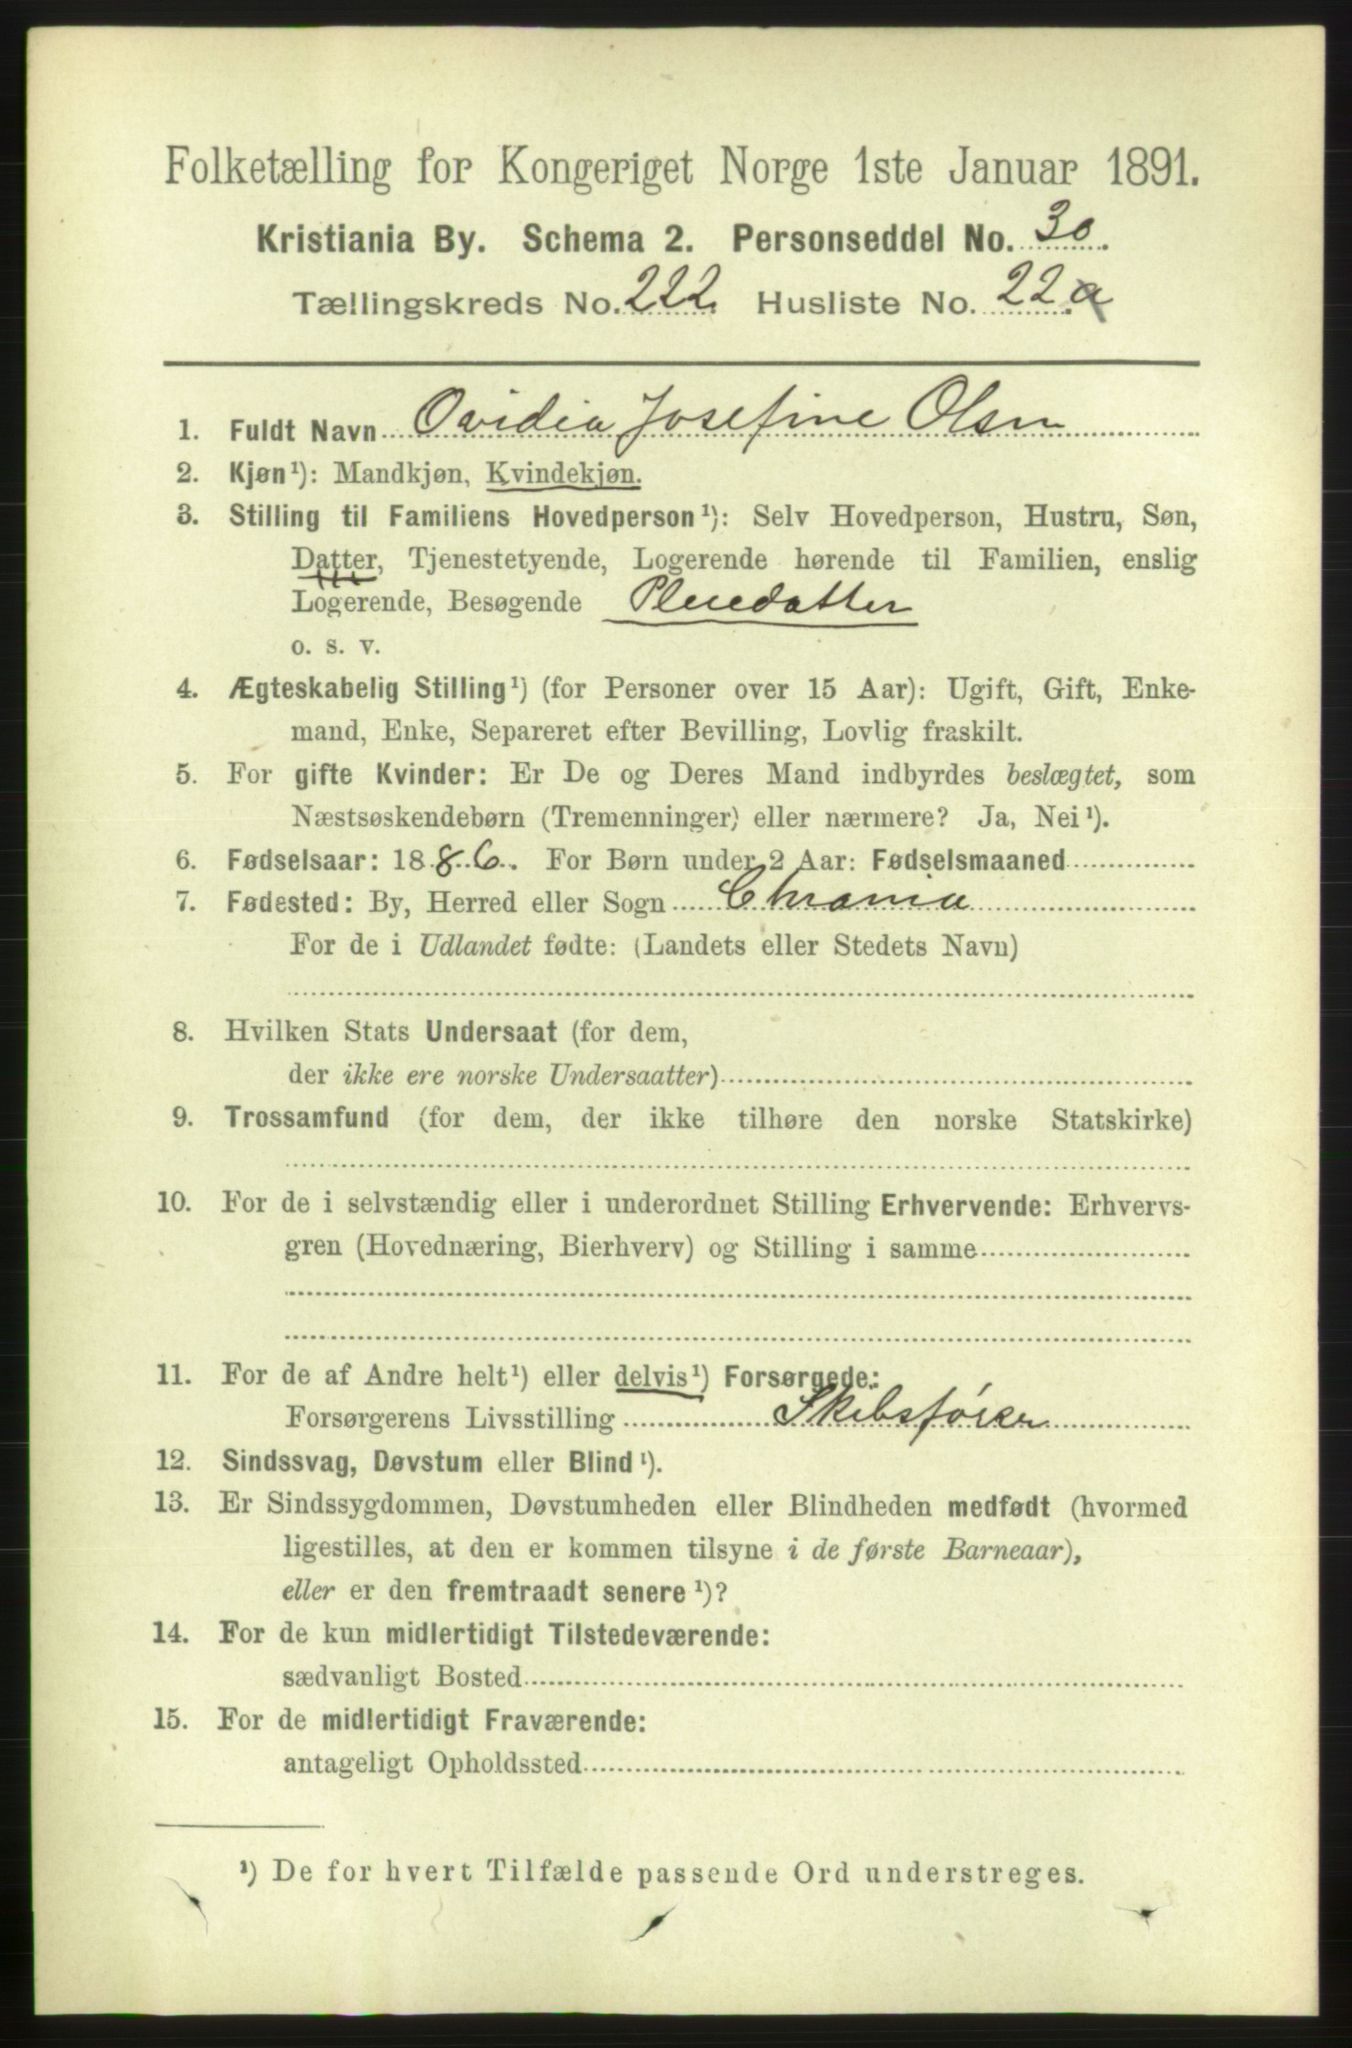 Folketælling for Kongeriget Norge 1ste Januar 1891.
Kristiania By. Schema 2. Personseddel No. 30.
Tællingskreds No. 222. Husliste No. 22.a
1. Fuldt Navn Ovidia Josefine Olsen
2. Kjøn¹): Mandkjøn, Kvindekjøn.
3. Stilling til Familiens Hovedperson¹): Selv Hovedperson, Hustru, Søn,
Datter, Tjenestetyende, Logerende hørende til Familien, enslig
Logerende, Besøgende Pleiedatter
o. s. v.
4. Ægteskabelig Stilling¹) (for Personer over 15 Aar): Ugift, Gift, Enke-
mand, Enke, Separeret efter Bevilling, Lovlig fraskilt.
5. For gifte Kvinder: Er De og Deres Mand indbyrdes beslægtet, som
Næstsøskendebørn (Tremenninger) eller nærmere? Ja, Nei¹).
6. Fødselsaar: 1886. For Børn under 2 Aar: Fødselsmaaned
7. Fødested: By, Herred eller Sogn Chrania
For de i Udlandet fødte: (Landets eller Stedets Navn)
8. Hvilken Stats Undersaat (for dem,
der ikke ere norske Undersaatter)
9. Trossamfund (for dem, der ikke tilhøre den norske Statskirke)
10. For de i selvstændig eller i underordnet Stilling Erhvervende: Erhvervs-
gren (Hovednæring, Bierhverv) og Stilling i samme
11. For de af Andre helt¹) eller delvis¹) Forsørgede:
Forsørgerens Livsstilling Skibsfører
12. Sindssvag, Døvstum eller Blind¹).
13. Er Sindssygdommen, Døvstumheden eller Blindheden medfødt (hvormed
ligestilles, at den er kommen tilsyne i de første Barneaar),
eller er den fremtraadt senere¹)?
14. For de kun midlertidigt Tilstedeværende:
sædvanligt Bosted
15. For de midlertidigt Fraværende:
antageligt Opholdssted
¹) De for hvert Tilfælde passende Ord understreges.